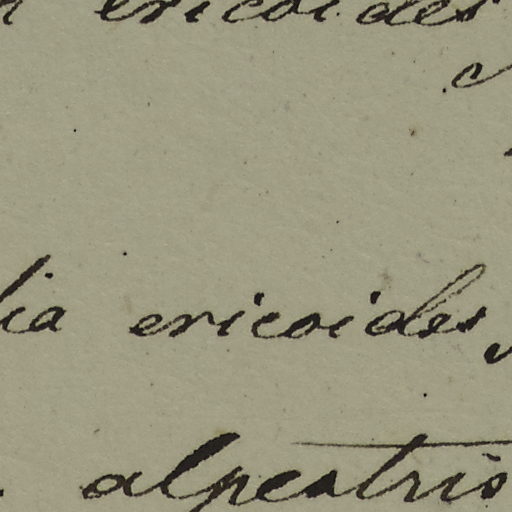 ericoides
ericoides
alpestris